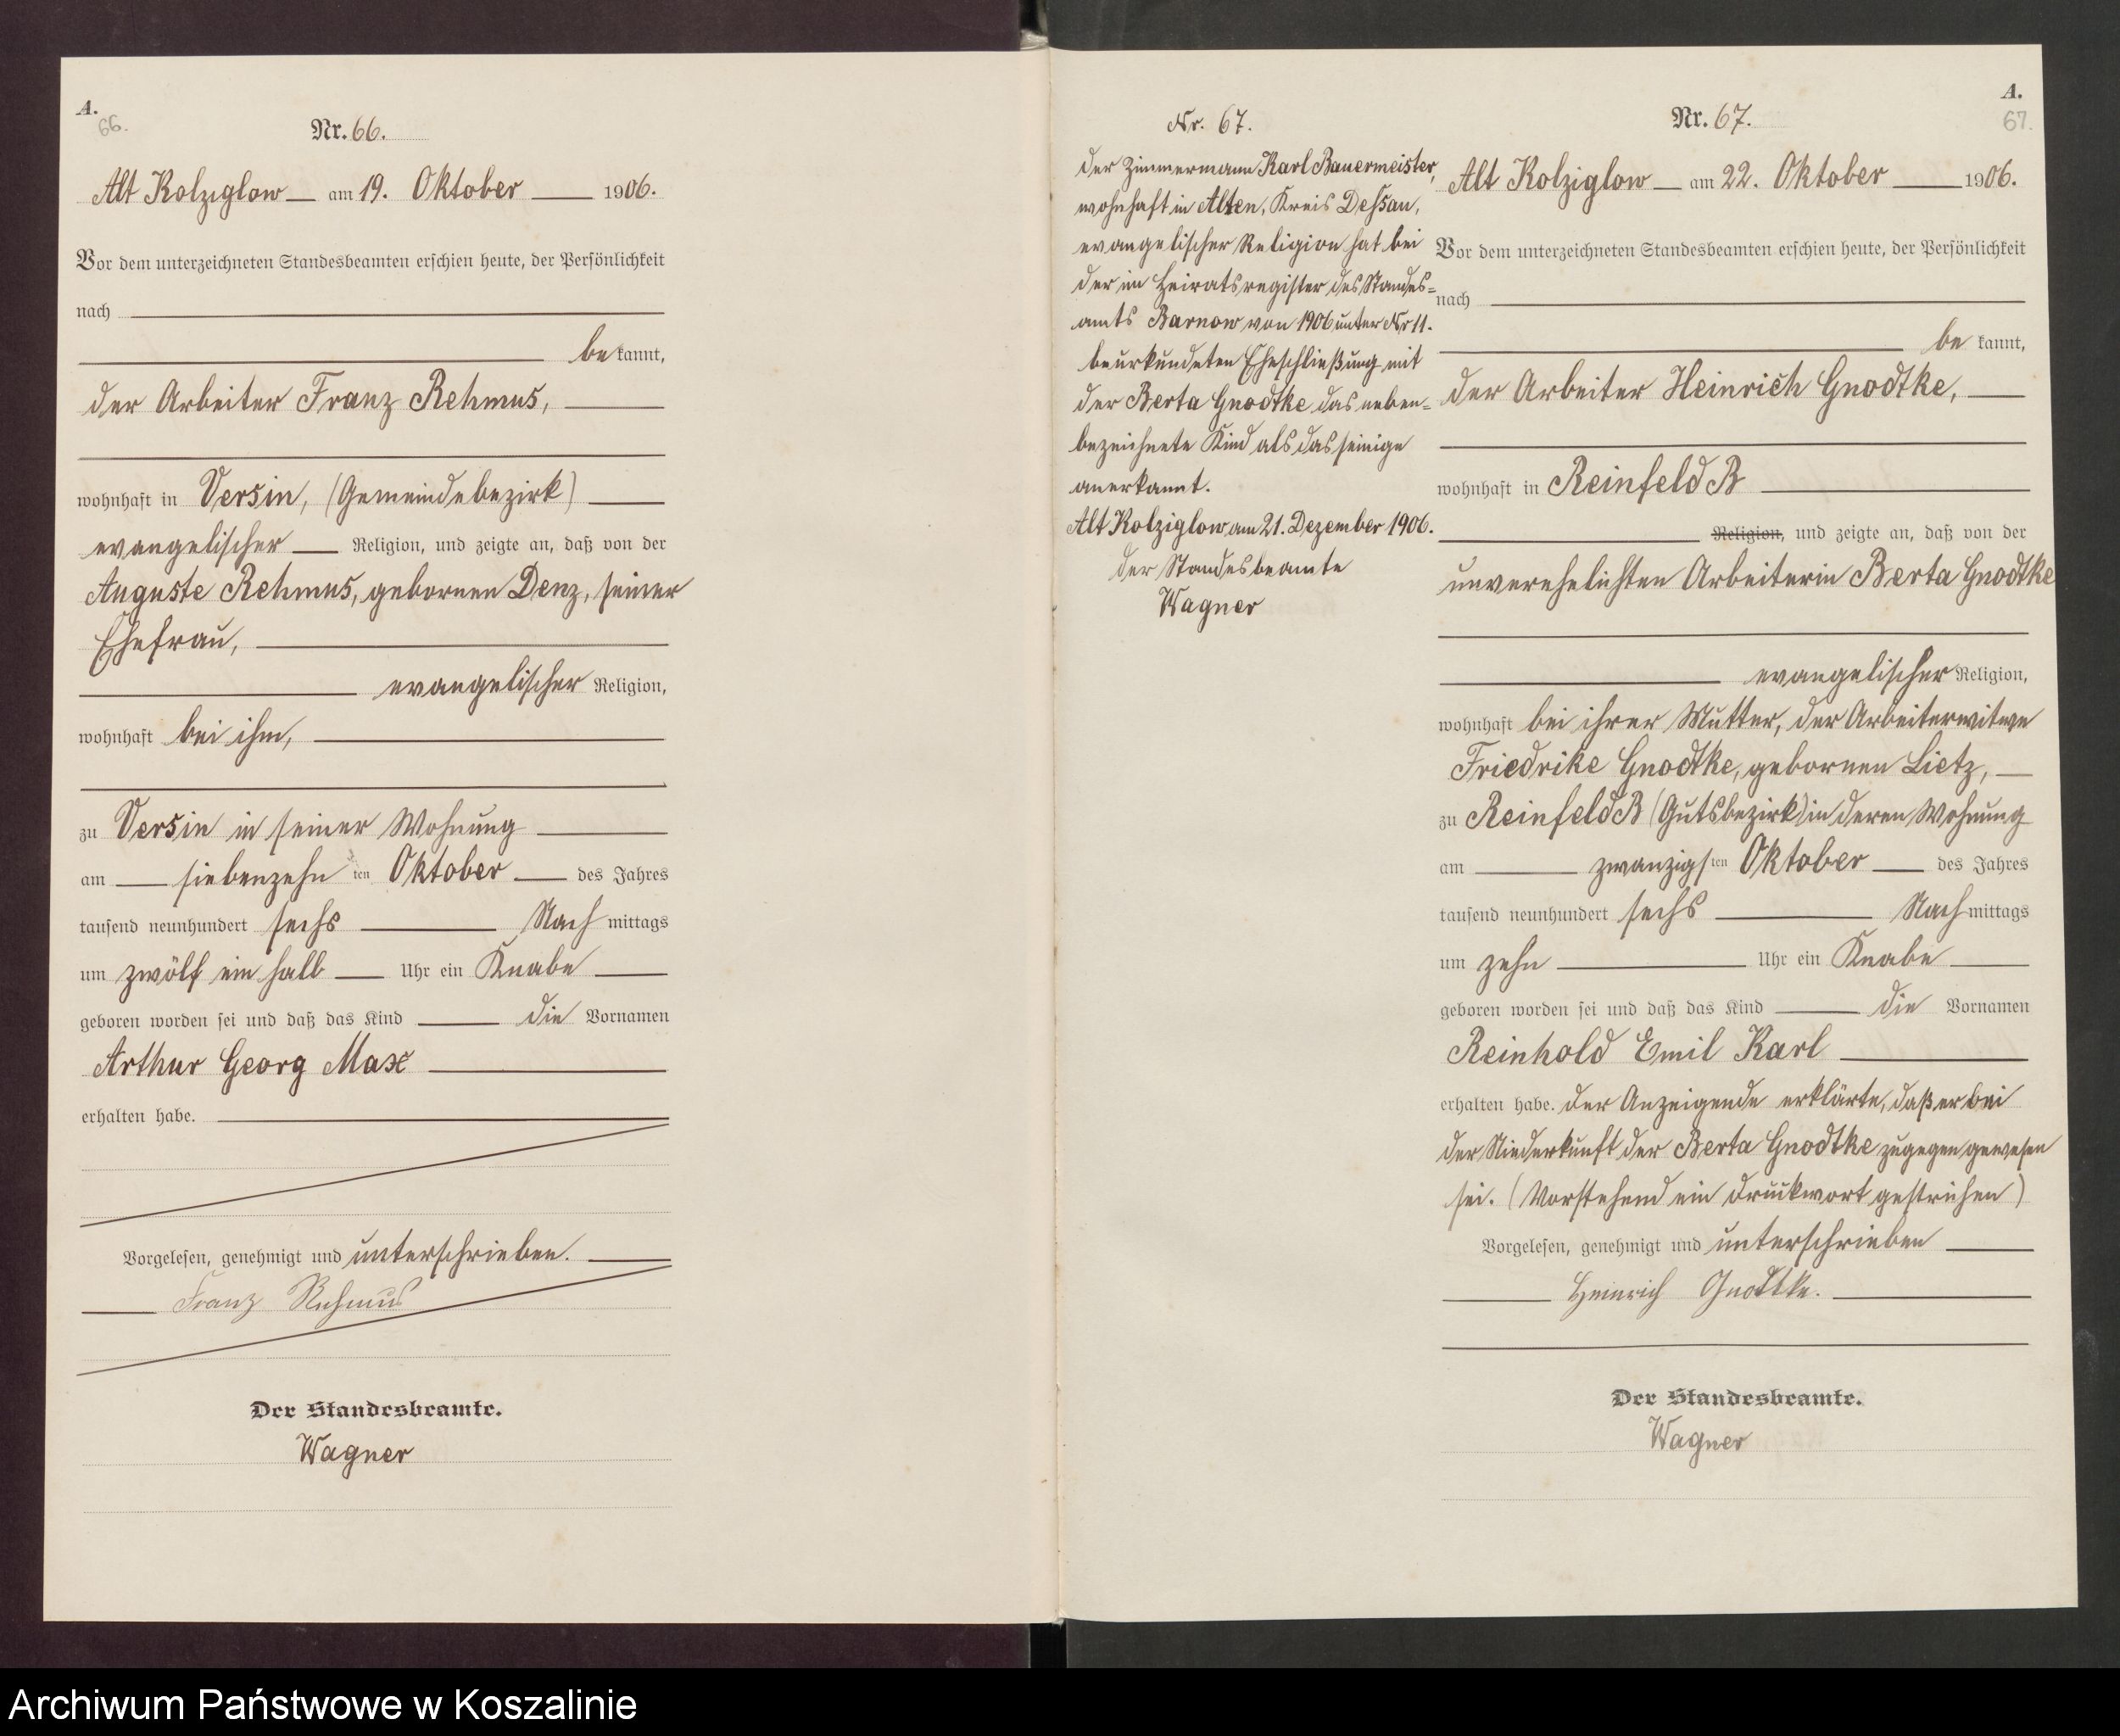 A.
66.
Nr. 66.
Alt Kolziglow am 19. Oktober 1906.
Vor dem unterzeichneten Standesbeamten erschien heute, der Persönlichkeit
nach
bekannt,
der Arbeiter Franz Rehmus,
wohnhaft in Versin, (Gemeindebezirk)
evangelischer Religion, und zeigte an, daß von der
Auguste Rehmus, gebornen Denz, seiner
Ehefrau,
evangelischer Religion,
wohnhaft bei ihm,
zu Versin in seiner Wohnung
am siebenzehnten Oktober des Jahres
tausend neunhundert sechs Nachmittags
um zwölf ein halb Uhr ein Knabe
geboren worden sei und daß das Kind die Vornamen
Arthur Georg Max
erhalten habe.
Vorgelesen, genehmigt und unterschrieben.
Franz Rehmus
Der Standesbeamte.
Wagner
Nr. 67.
Der Zimmermann Karl Bauermeister,
wohnhaft in Alten, Kreis Dessau,
evangelischer Religion hat bei
der im Heiratsregister des Standes=
amts Barnow von 1906 unter Nr 11.
beurkundeten Eheschließung mit
der Berta Gnodtke das neben=
bezeichnete Kind als das seinige
anerkannt.
Alt Kolziglow am 21. Dezember 1906.
Der Standesbeamte
Wagner
A.
67.
Nr. 67.
Alt Kolziglow am 22. Oktober 1906.
Vor dem unterzeichneten Standesbeamten erschien heute, der Persönlichkeit
nach
be kannt,
der Arbeiter Heinrich Gnodtke,
wohnhaft in Reinfeld B
Religion, und zeigte an, daß von der
unverehelichten Arbeiterin Berta Gnodtke
evangelischer Religion,
wohnhaft bei ihrer Mutter, der Arbeiterwitwe
Friedrike Gnodtke, gebornen Lietz,
zu Reinfeld B (Gutsbezirk) in deren Wohnung
am zwanzigsten Oktober des Jahres
tausend neunhundert sechs Nachmittags
um zehn Uhr ein Knabe
geboren worden sei und daß das Kind die Vornamen
Reinhold Emil Karl
erhalten habe. Der Anzeigende erklärte, daß er bei
der Niederkunft der Berta Gnodtke zugegen gewesen
sei. (Vorstehend ein Druckwort gestrichen)
Vorgelesen, genehmigt und unterschrieben
Heinrich Gnodtke.
Der Standesbeamte.
Wagner
Archiwum Państwowe w Koszalinie